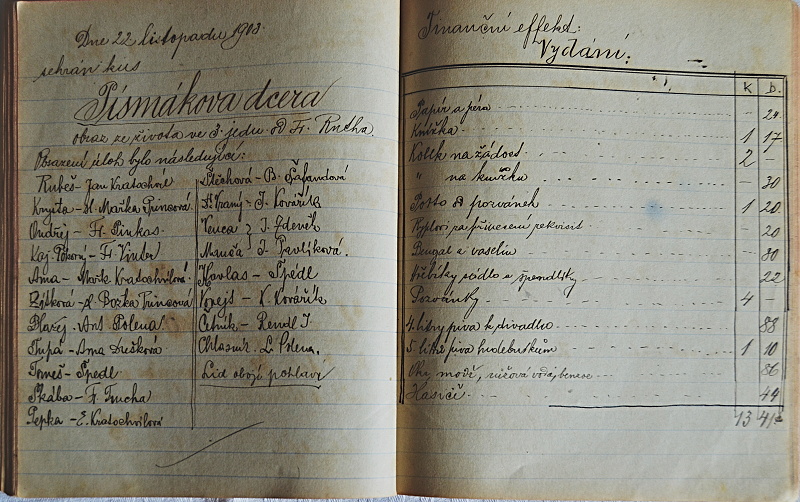 Dne 22 listopadu 1903
sehrán kus
Písmákova dcera
obraz ze života ve 3 jedn. od Fr. Ruth
Obsazení úloh bylo následující:
Rubeš - Jan Kratochvíl
- Mařka Princová
Ondřej - Fr. Pinkas
Kaj. Pokorný - Fr. Vinter
Ama - Mařk Kratochvílová
- Božka Princová
Blažej - Ant. Polena
Ťupa - Ama Drešková
Tomeš - Špedl
Škába - Fr. Tucha
Pepka - E. Kratochvílová
Štěchová - B. Šafandová
- J. Kovářík
Venca - J. Zdeněk
Manča - J. Pavlíková.
Havlas - Špedl
Vojejs - K. Kovářík
Četník - Rendl J.
Chlasník. L. Polena.
Lid obojí pohlaví
Finanční effekt:
Vydání:
K D.
Papír a péra 24
Knížka 1 17
Kolek na žádost 2 -
" na knížku 30
Porto & pozvánek 1 20
za přivezení rekvisit 20
Bengal a vaselin 80
Hřebíky mýdlo a špendlíky 22
Pozvánky 4 -
4 litry piva k divadlu 88
5 litrů piva hudebníkům 1 10
voda, benzoe 86
Hasiči 44
13 41